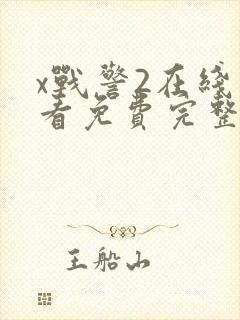 x戰警2在綫
看免費完整
王船山